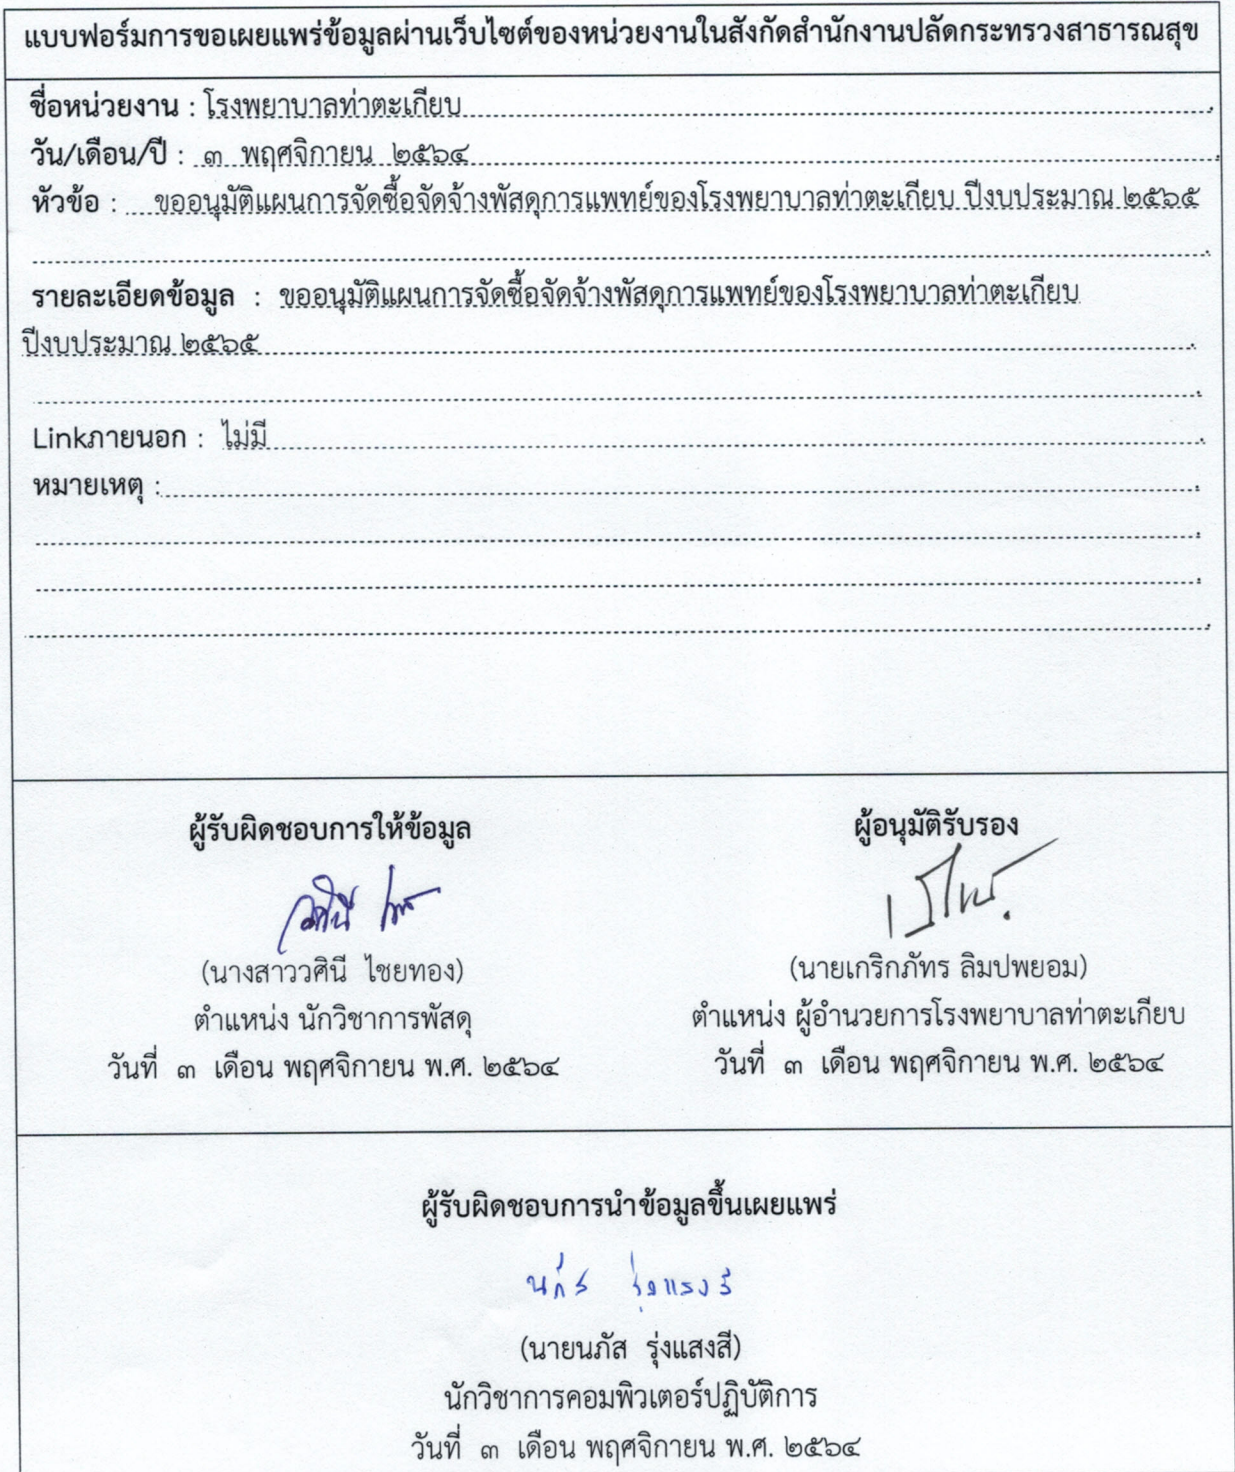 แบบฟอร์มการขอเผยแพร่ข้อมูลผ่านเว็บไซต์ของหน่วยงานในสังกัดสำนักงานปลัดกระทรวงสาธารณสุข
ชื่อหน่วยงาน : โรงพยาบาลท่าตะเกียบ
วัน/เดือน/ปี : ๓ พฤศจิกายน ๒๕๖๔
หัวข้อ : ขออนุมัติแผนการจัดซื้อจัดจ้างพัสดุการแพทย์ของโรงพยาบาลท่าตะเกียบ ปีงบประมาณ ๒๕๖๕
รายละเอียดข้อมูล : ขออนุมัติแผนการจัดซื้อจัดจ้างพัสดุการแพทย์ของโรงพยาบาลท่าตะเกียบ
ปีงบประมาณ ๒๕๖๕
Linkภายนอก : ไม่มี
หมายเหตุ :
ผู้รับผิดชอบการให้ข้อมูล
วศินี
(นางสาววศินี ไชยทอง)
ตำแหน่ง นักวิชาการพัสดุ
วันที่ ๓ เดือน พฤศจิกายน พ.ศ. ๒๕๖๔
ผู้อนุมัติรับรอง
(นายเกริกภัทร ลิมปพยอม)
ตำแหน่ง ผู้อำนวยการโรงพยาบาลท่าตะเกียบ
วันที่ ๓ เดือน พฤศจิกายน พ.ศ. ๒๕๖๔
ผู้รับผิดชอบการนำข้อมูลขึ้นเผยแพร่
นภัส รุ่งแสงสี
(นายนภัส รุ่งแสงสี)
นักวิชาการคอมพิวเตอร์ปฏิบัติการ
วันที่ ๓ เดือน พฤศจิกายน พ.ศ. ๒๕๖๔